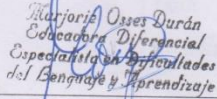 Marjorie Osses Durán
Educadora Diferencial
Especialista en Dificultades
del Lenguaje y Aprendizaje